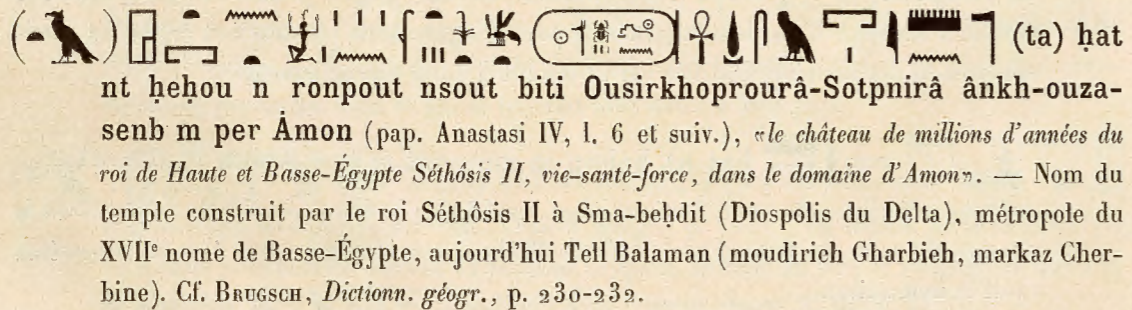 (ta) ḥat
nt ḥeḥou n ronpout nsout biti Ousirkhoprourâ-Sotpnirâ ânkh-ouza-
senb m per Åmon (pap. Anastasi IV, l. 6 et suiv.), «le château de millions d'années du
roi de Haute et Basse-Égypte Séthôsis II, vie-santé-force, dans le domaine d'Amon». — Nom du
temple construit par le roi Séthôsis II à Sma-beḥdit (Diospolis du Delta), métropole du
XVIIᵉ nome de Basse-Égypte, aujourd'hui Tell Balaman (moudirieh Gharbieh, markaz Cher-
bine). Cf. BRUGSCH, Dictionn. géogr., p. 230-232.